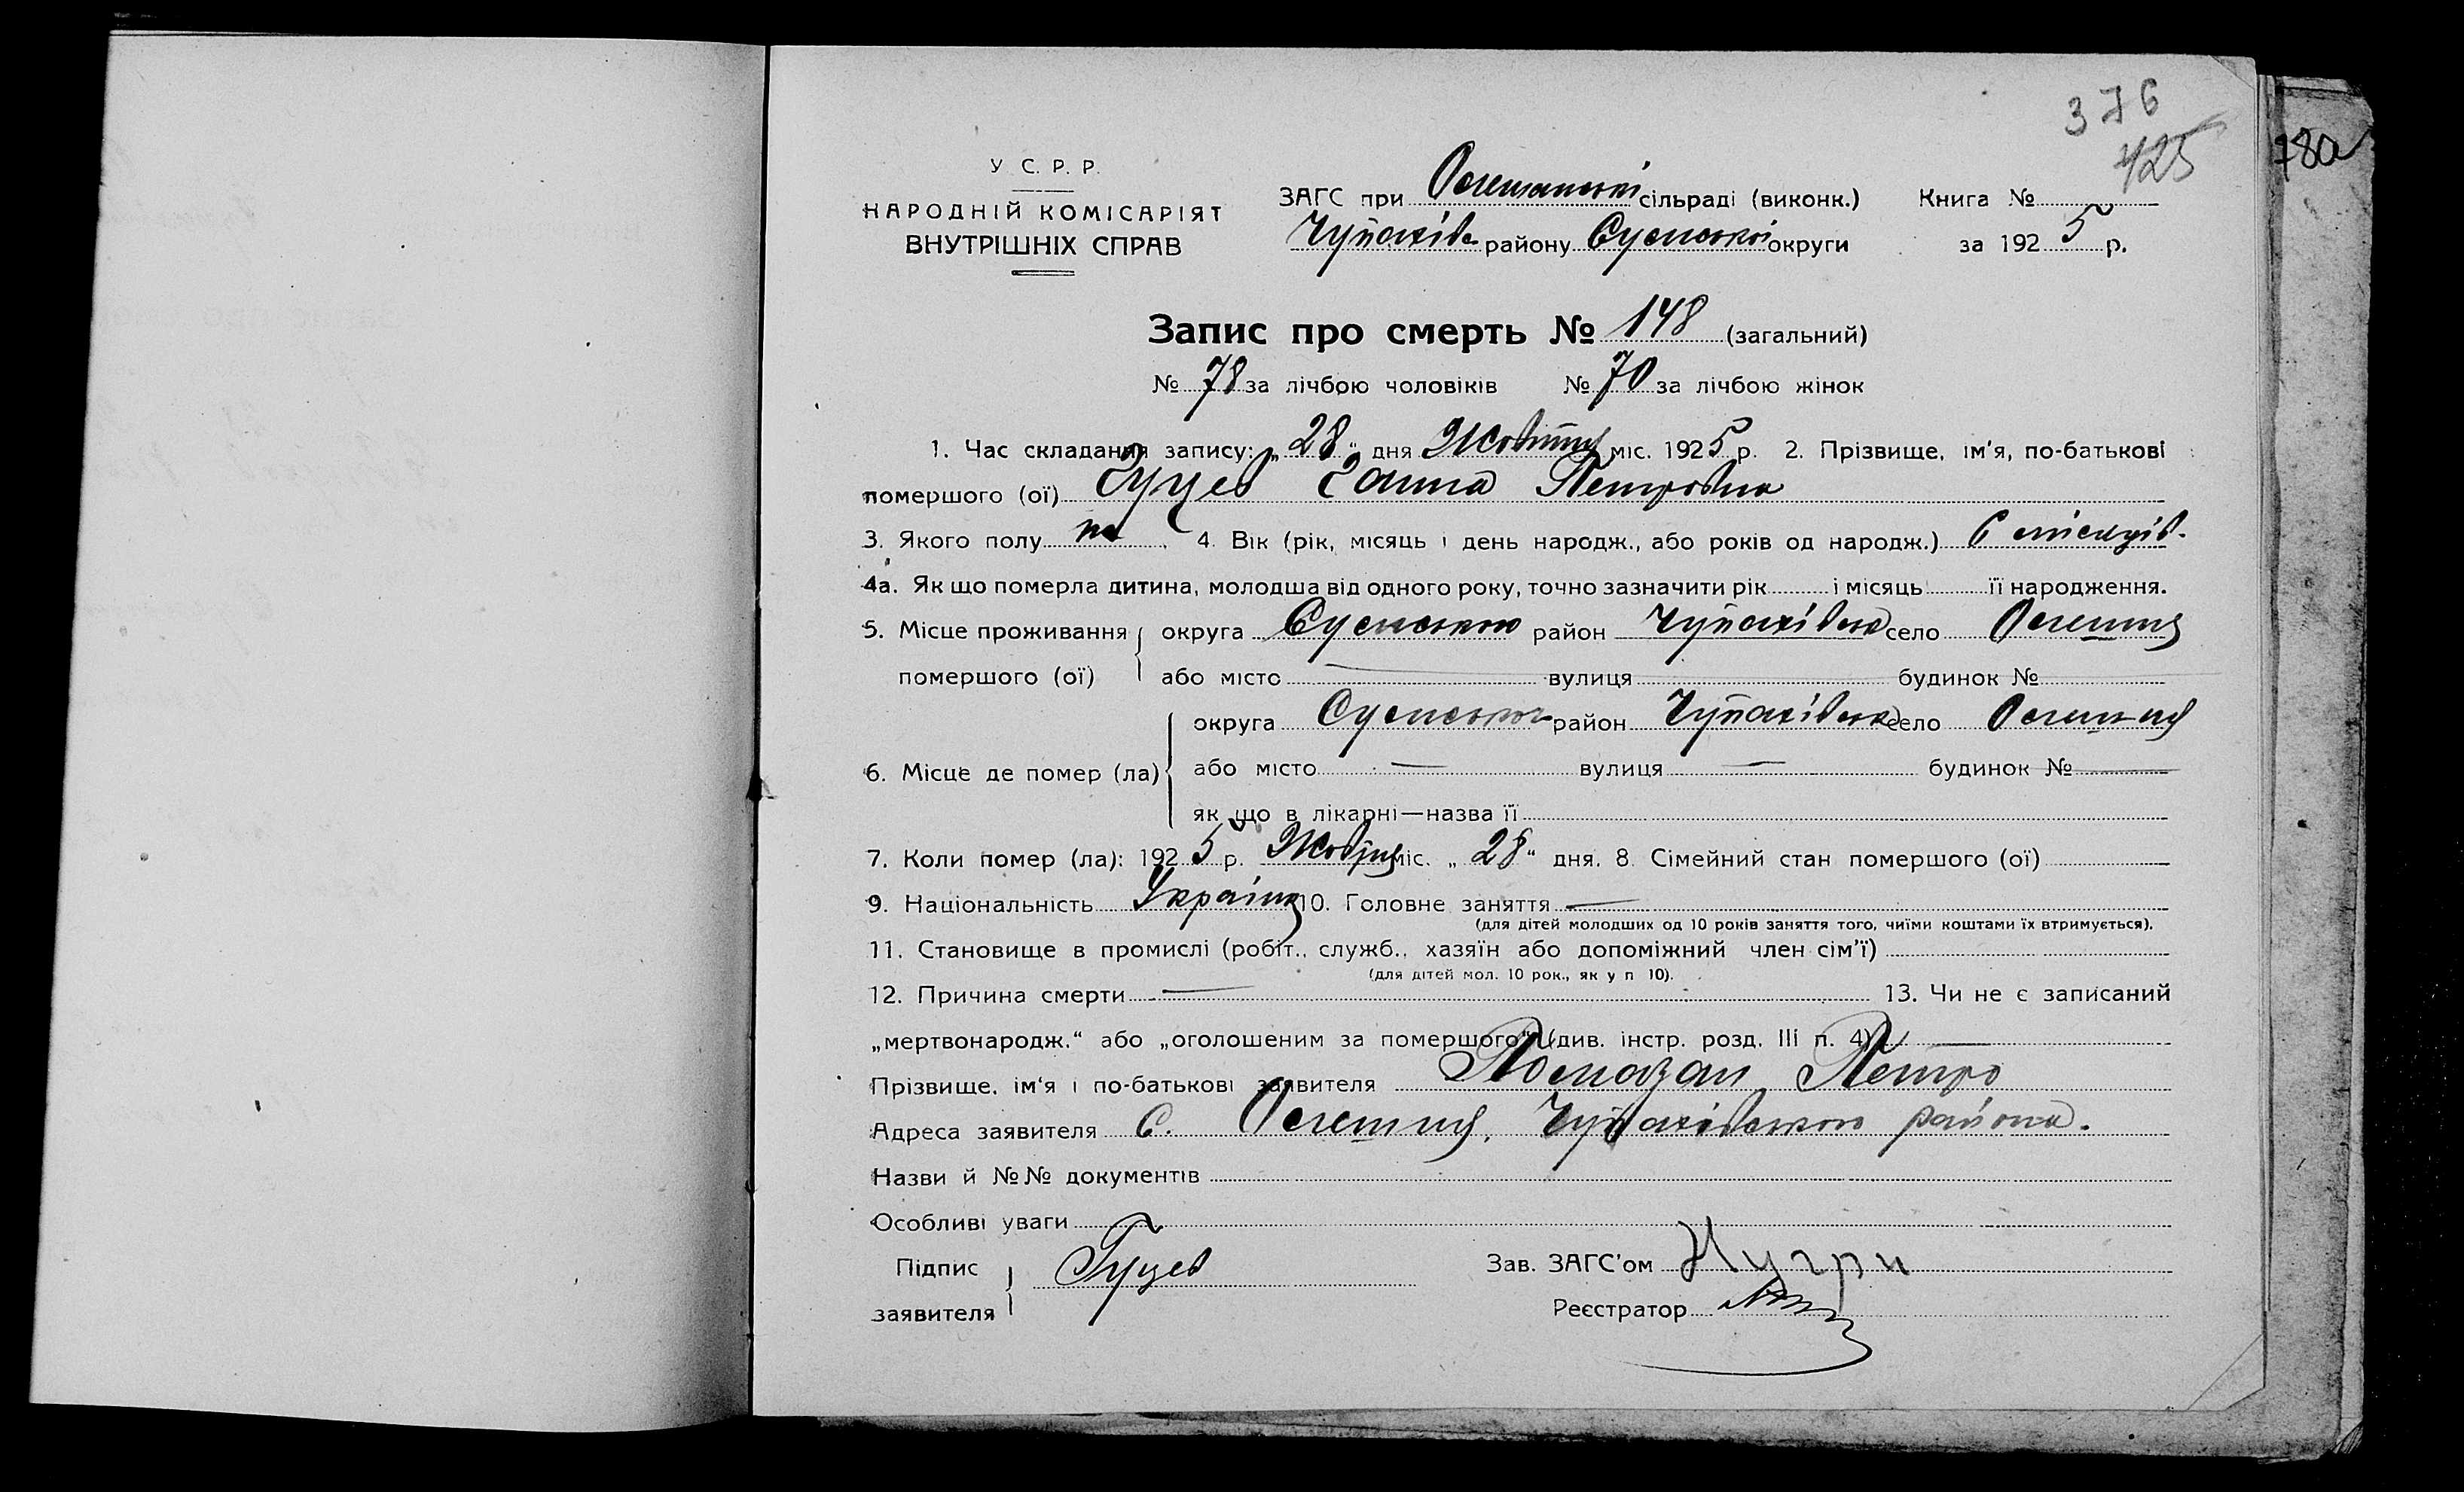 376
425
78а
У. С. Р. Р.
НАРОДНІЙ КОМІСАРІЯТ
ВНУТРІШНІХ СПРАВ
ЗАГС при Олешанські сільраді (виконк.) Книга №
Чупахівс району Сумської округи за 1925 р.
Запис про смерть № 148 (загальний)
№ 78 за лічбою чоловіків № 70 за лічбою жінок
1. Час складання запису: „28“ дня Жовтня міс. 1925 р. 2. Прізвище, ім'я, по-батькові
помершого (ої) Гуцев Ганна Петровна
3. Якого полу 4. Вік (рік, місяць і день народж., або років од народж.) 6 місяців.
4а. Як що померла дитина, молодша від одного року, точно зазначити рік і місяць її народження.
5. Місце проживання помершого (ої) округа Сумською район Чупахівськ село Олешня
або місто вулиця будинок №
6. Місце де помер (ла) округа Сумською район Чупахівськ село Олешня
або місто — вулиця — будинок № —
як що в лікарні—назва її
7. Коли помер (ла): 1925 р. Жовтня міс. „28“ дня. 8. Сімейний стан помершого (ої)
9. Національність Україн 10. Головне заняття —
(для дітей молодших од 10 років заняття того, чиїми коштами їх втримується).
11. Становище в промислі (робіт., служб., хазяїн або допоміжний член сім'ї)
(для дітей мол. 10 рок., як у п 10).
12. Причина смерти — 13. Чи не є записаний
„мертвонародж.“ або „оголошеним за помершого“ (див. інстр. розд. III п. 4) —
Прізвище, ім'я і по-батькові заявителя Помазан Петро
Адреса заявителя С. Олешня, Чупахівською района.
Назви й №№ документів
Особливі уваги
Підпис заявителя Гуцев
Зав. ЗАГС'ом
Реєстратор